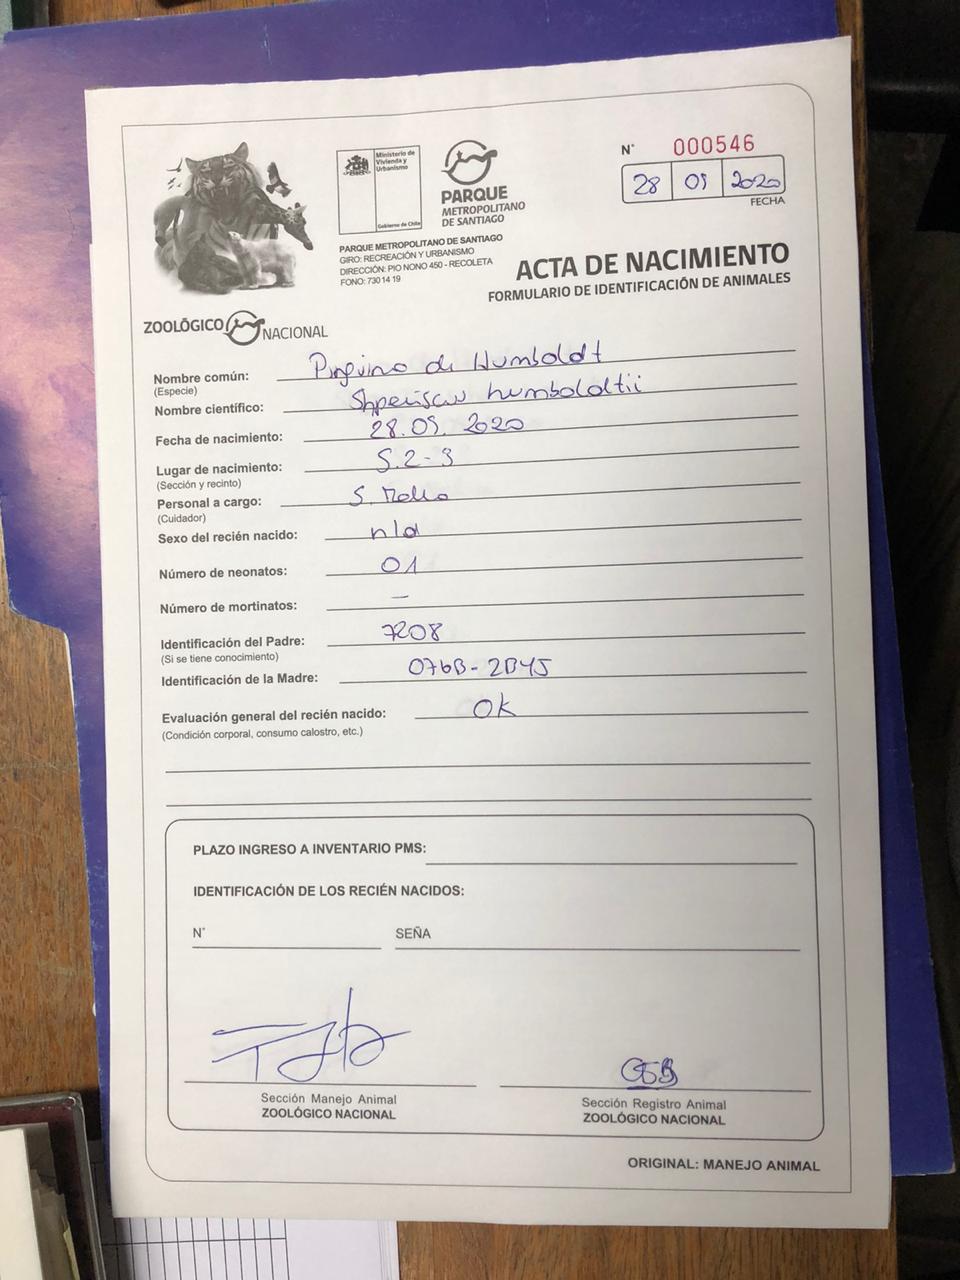 N° 000546
28 09 2020
FECHA
Ministerio de
Vivienda y
Urbanismo
Gobierno de Chile
PARQUE
METROPOLITANO
DE SANTIAGO
PARQUE METROPOLITANO DE SANTIAGO
GIRO: RECREACIÓN Y URBANISMO
DIRECCIÓN: PIO NONO 450 - RECOLETA
FONO: 730 14 19
ACTA DE NACIMIENTO
FORMULARIO DE IDENTIFICACIÓN DE ANIMALES
ZOOLÓGICO NACIONAL
Nombre común: Pinguino de Humboldt
(Especie)
Nombre científico: Shpeniscus humboldtii
Fecha de nacimiento: 28.09.2020
Lugar de nacimiento: S.2-3
(Sección y recinto)
Personal a cargo: S.
(Cuidador)
Sexo del recién nacido: n/d
Número de neonatos: 01
Número de mortinatos: —
Identificación del Padre: 7208
(Si se tiene conocimiento)
Identificación de la Madre:
Evaluación general del recién nacido: OK
(Condición corporal, consumo calostro, etc.)
PLAZO INGRESO A INVENTARIO PMS:
IDENTIFICACIÓN DE LOS RECIÉN NACIDOS:
N° SEÑA
Sección Manejo Animal
ZOOLÓGICO NACIONAL
Sección Registro Animal
ZOOLÓGICO NACIONAL
ORIGINAL: MANEJO ANIMAL